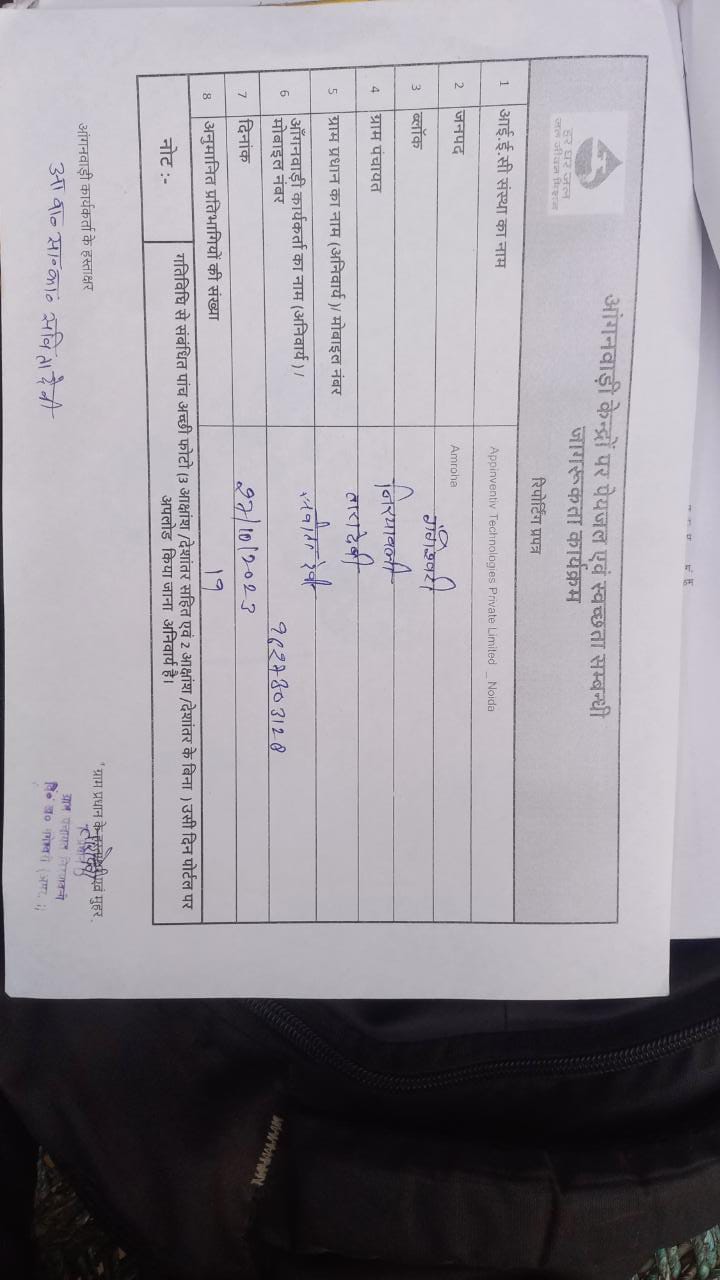 हर घर जल
जल जीवन मिशन
आंगनवाड़ी केन्द्रों पर पेयजल एवं स्वच्छता सम्बन्धी
जागरूकता कार्यक्रम
रिपोर्टिंग प्रपत्र
1 आई.ई.सी संस्था का नाम Appinventiv Technologies Private Limited _ Noida
2 जनपद Amroha
3 ब्लॉक गंगेश्वरी
4 ग्राम पंचायत
5 ग्राम प्रधान का नाम (अनिवार्य )/ मोबाइल नंबर तारा देवी
6 आँगनवाड़ी कार्यकर्ता का नाम (अनिवार्य ) /
मोबाइल नंबर
7 दिनांक 27/10/2023
8 अनुमानित प्रतिभागियों की संख्या 19
नोट :- गतिविधि से संबंधित पांच अच्छी फोटो (3 आक्षांश /देशांतर सहित एवं 2 आक्षांश /देशांतर के बिना ) उसी दिन पोर्टल पर
अपलोड किया जाना अनिवार्य है।
आंगनवाड़ी कार्यकर्ता के हस्ताक्षर
ग्राम प्रधान के हस्ताक्षर एवं मुहर
ग्राम पंचायत